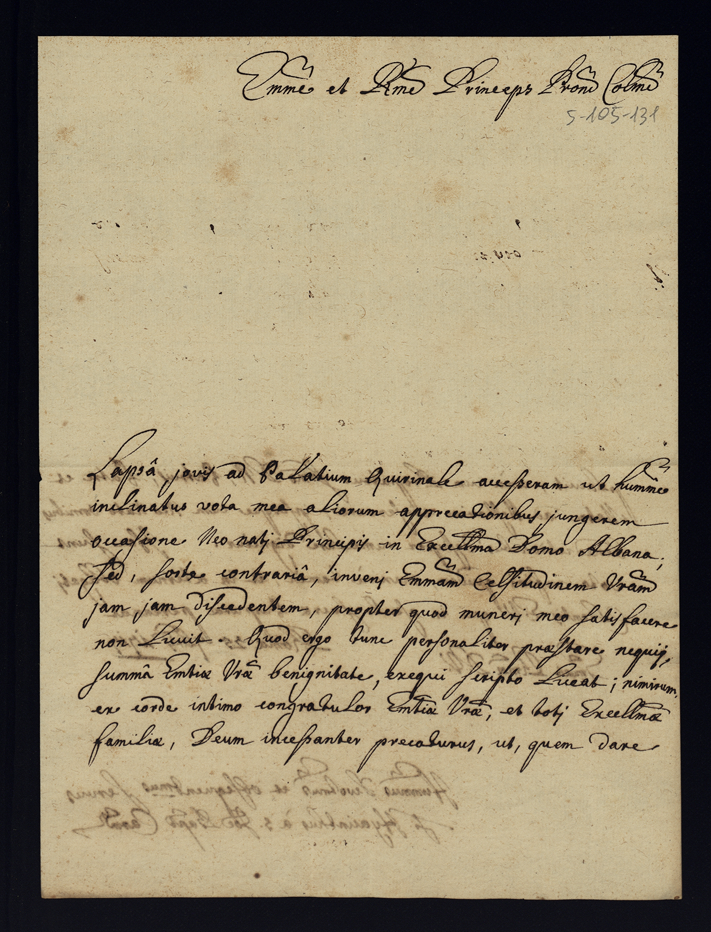 Emme et Rme Princeps Prone Colme
5-105-131
Lapsâ jovis ad Palatium Quirinale accesseram ut humme
inclinatus vota mea aliorum apprecationibus jungerem
occasione Neo natj Principis in Excellma Domo Albana;
sed, sorte contrariâ, invenj Emmam Celsitudinem Vram
jam jam discedentem, propter quod munerj meo satisfacere
non licuit. Quod ergo tunc personaliter præstare nequij,
summâ Emtiæ Vræ benignitate, exequi scripto liceat; nimirum,
ex corde intimo congratulor Emtiæ Vræ, et totj Excellmæ
familiæ, Deum incessanter precaturus, ut, quem dare